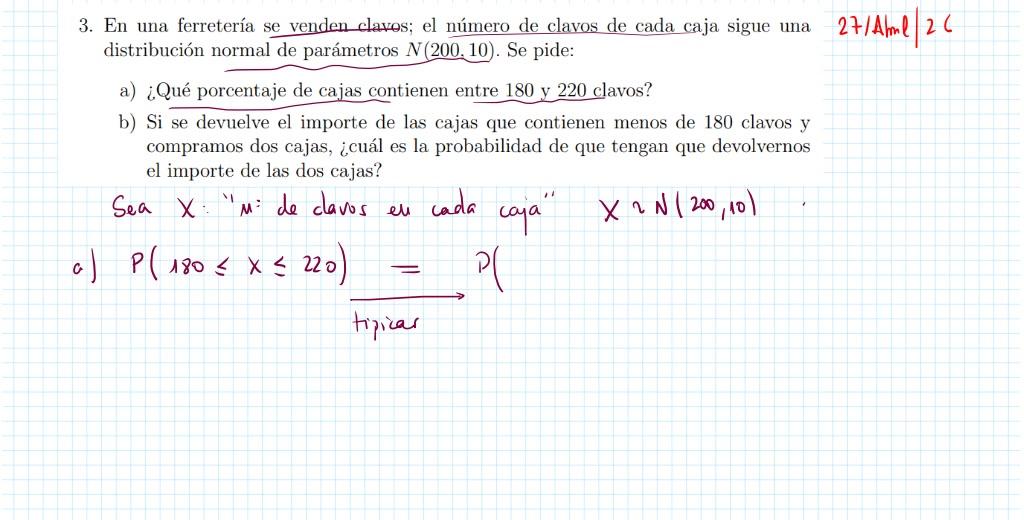 3. En una ferretería se venden clavos; el número de clavos de cada caja sigue una
distribución normal de parámetros N(200, 10). Se pide:
27/Abril/26
a) ¿Qué porcentaje de cajas contienen entre 180 y 220 clavos?
b) Si se devuelve el importe de las cajas que contienen menos de 180 clavos y
compramos dos cajas, ¿cuál es la probabilidad de que tengan que devolvernos
el importe de las dos cajas?
Sea X: "Nº de clavos en cada caja" X ~ N(200,10)
a) P(180 ≤ X ≤ 220) = P(
tipicar